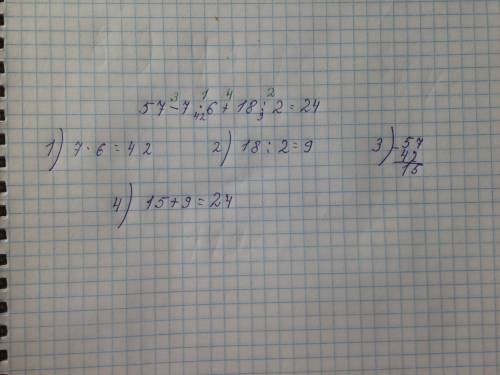 3 1 4 2
57-7·6+18:2=24
42 9
1) 7·6=42 2) 18:2=9 3) -57
42
15
4) 15+9=24